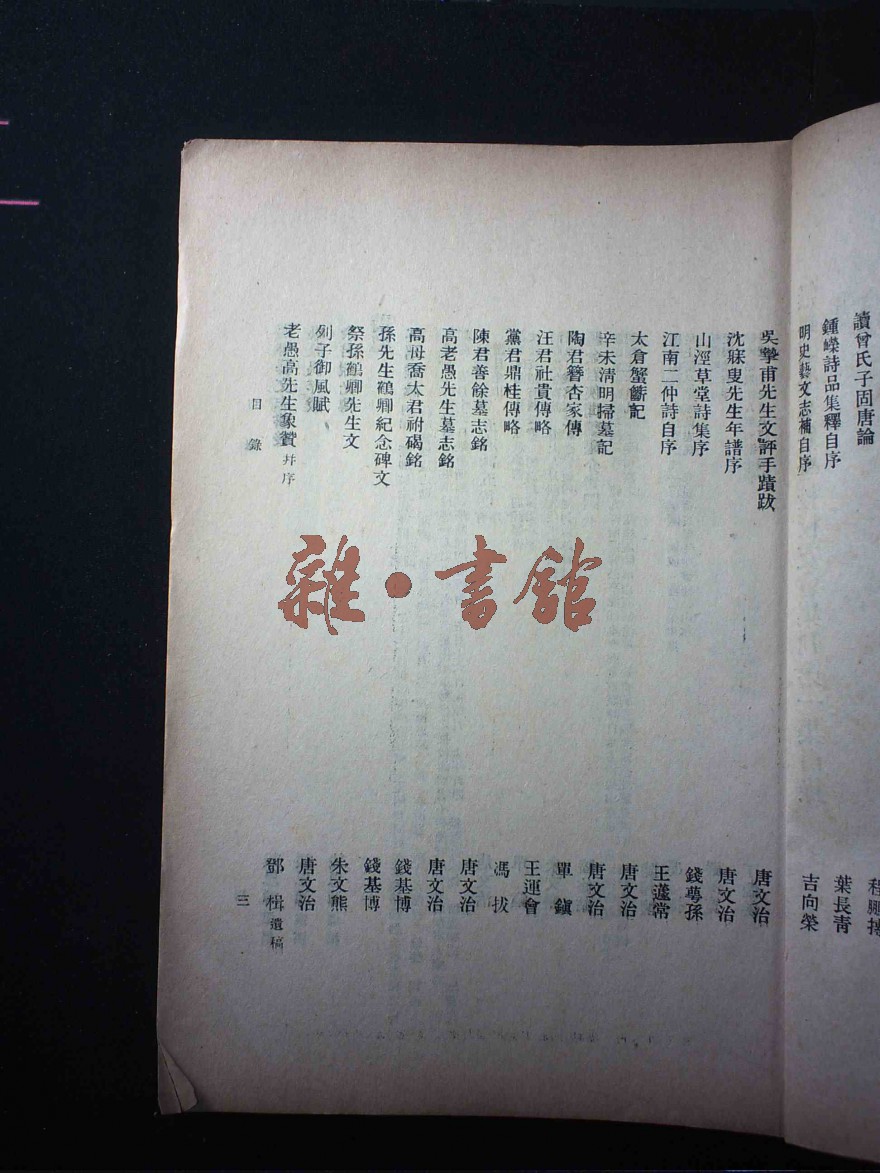 讀曾氏子固唐論 程鵬
鍾嶸詩品集釋自序 葉長青
明史藝文志補自序 吉向榮
吳摯甫先生文評手蹟跋 唐文治
沈寐叟先生年譜序 唐文治
山涇草堂詩集序 錢萼孫
江南二仲詩自序 王蘧常
太倉蟹籪記 唐文治
辛未清明掃墓記 唐文治
陶君簪杏家傳 單鎭
汪君社貴傳略 王運會
黨君鼎桂傳略 馮拔
陳君善餘墓志銘 唐文治
高老愚先生墓志銘 唐文治
高母喬太君祔碣銘 錢基博
孫先生鶴卿紀念碑文 錢基博
祭孫鶴卿先生文 朱文熊
列子御風賦 唐文治
老愚高先生象贊并序 鄧楫遺稿
目錄 三
雜·書館